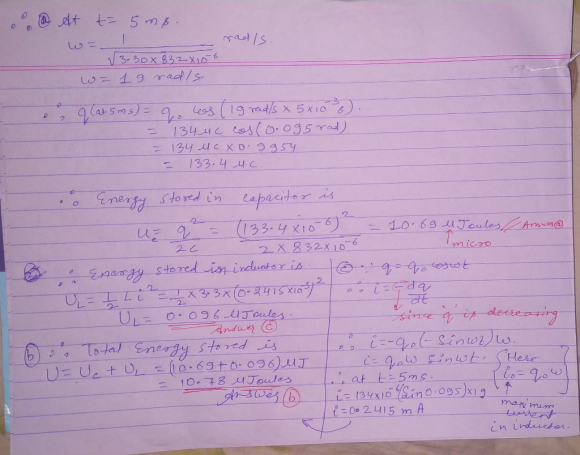 ∴ ⓐ At t = 5 ms.
ω = 1/√(3.30×832×10⁻⁶) rad/s.
ω = 19 rad/s
∴ q(at 5ms) = q₀ cos(19 rad/s × 5×10⁻³s).
= 134 μc cos(0.095 rad)
= 134 μc × 0.9954
= 133.4 μc
∴ Energy stored in capacitor is
U_c = q²/2c = (133.4×10⁻⁶)²/2×832×10⁻⁶ = 10.69 μJoules // Answer ⓐ
micro
∴ Energy stored in inductor is
U_L = 1/2 Li² = 1/2 × 3.3 × (0.2415×10⁻³)²
U_L = 0.096 μJoules.
Answer ⓒ
ⓑ ∴ Total Energy stored is
U = U_c + U_L = (10.69 + 0.096) μJ
= 10.78 μJoules
Answer ⓑ
ⓒ ∵ q = q₀ cosωt
∴ i = -dq/dt
since 'q' is decreasing
∴ i = -q₀(-sinωt)ω.
i = q₀ω sinωt.
∴ at t = 5ms.
i = 134×10⁻⁶(sin 0.095)×19
i = 0.2415 mA
{Here
i₀ = q₀ω}
maximum
current
in inductor.